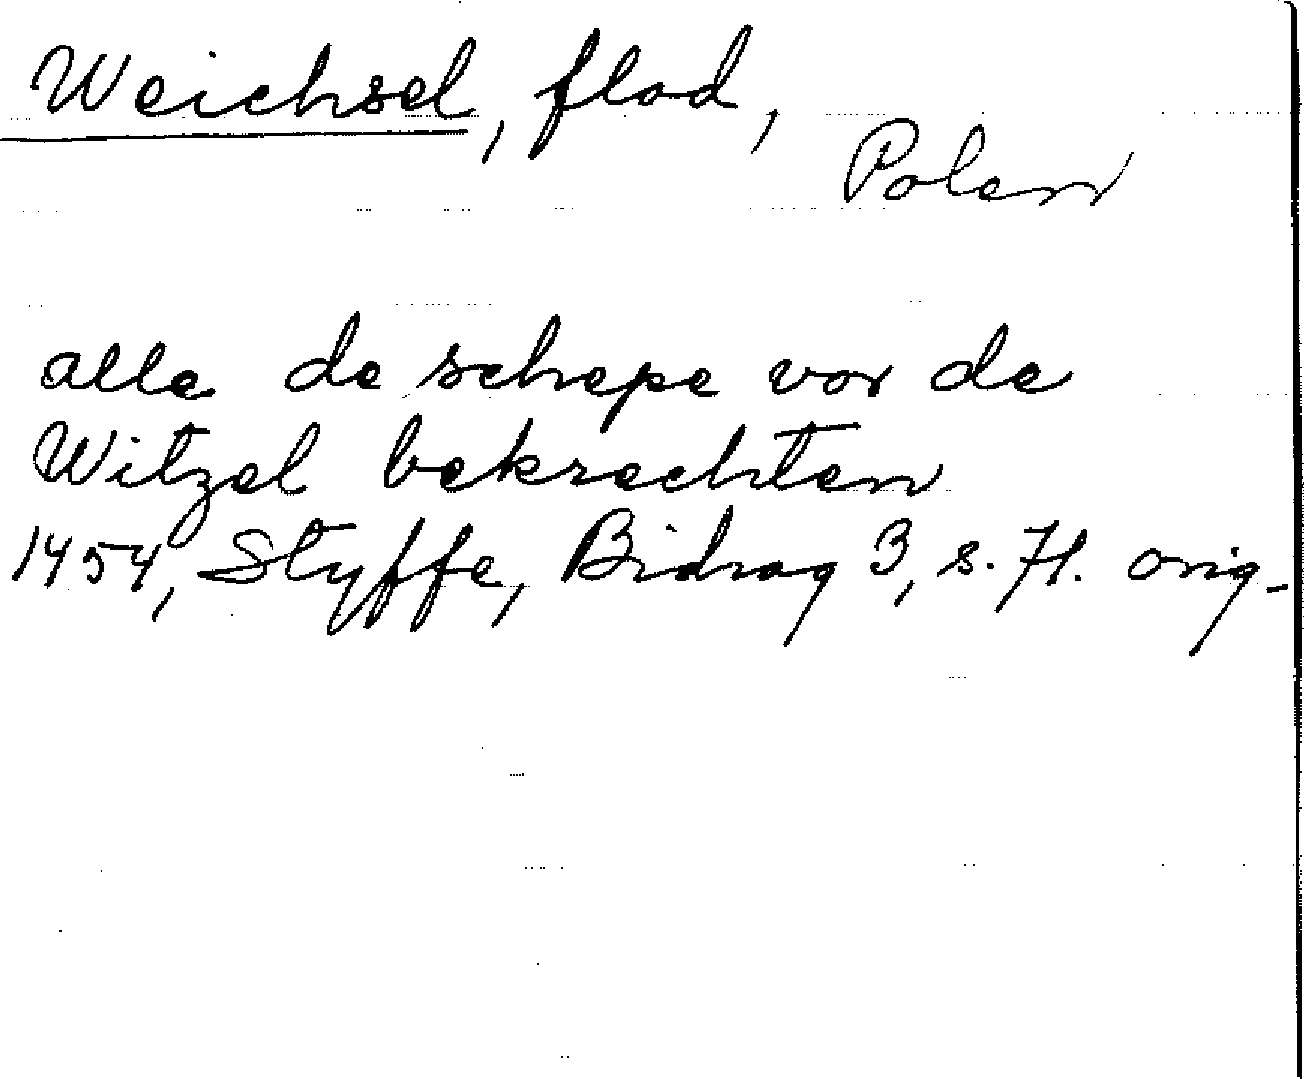 Weichsel, flod,
Polen
alle de schepe vor de
Witzel bekrechten
1454, Styffe, Bidrag 3, s. 71. orig.